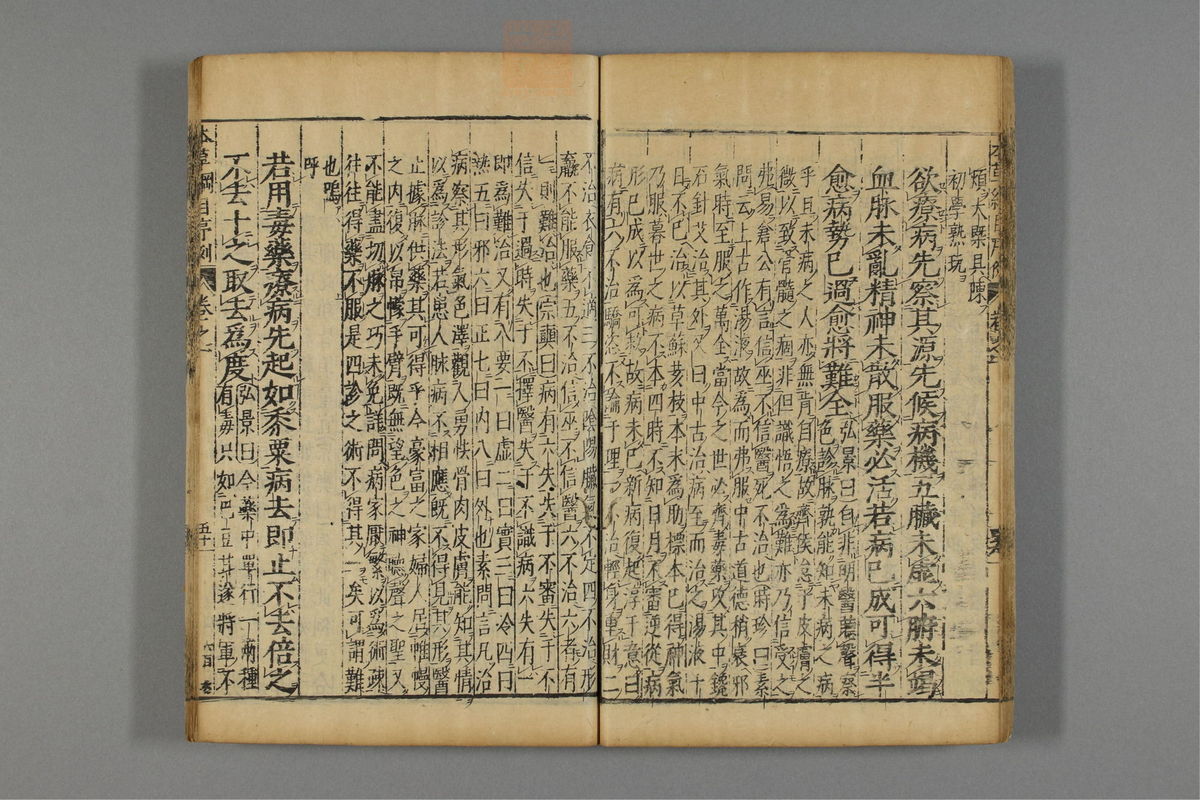 煩大槩具陳
初學熟玩
欲療病先察其源先候病機五臟未虛六腑未竭
血脉未亂精神未散服藥必活若病已成可得半
愈病勢已過愈將難全
弘景曰自非明醫聽聲察
色診脉孰能知未病之病
乎且未病之人亦無肯自療故齊侯怠于皮膚之
微以致骨髓之痼非但識悟之爲難亦乃信受之
弗易倉公有言信巫不信醫死不治也時珍曰素
問云上古作湯液故爲而弗服中古道德稍衰邪
氣時至服之萬全當今之世必齊毒藥攻其中鑱
石針艾治其外又曰中古治病至而治之湯液十
日不已治以草蘇荄枝本末爲助標本已得神氣
乃服暮世之病不本四時不知日月不審逆從病
形已成以爲可救故病未已新病復起淳于意曰
病有六不治驕恣不論于理一不治輕身重財二
不治衣食不適三不治陰陽臟氣不定四不治形
羸不能服藥五不治信巫不信醫六不治六者有
一則難治也宗奭曰病有六失失于不審失于不
信失于過時失于不擇醫失于不識病六失有一
即爲難治又有八要一曰虛二曰實三曰冷四曰
熱五曰邪六曰正七曰内八曰外也素問言凡治
病察其形氣色澤觀人勇怯骨肉皮膚能知其情
以爲診法若患人脉病不相應既不得見其形醫
止據脉供藥其可得乎今豪富之家婦人居帷幔
之内復以帛幪手臂既無望色之神聽聲之聖又
不能盡切脉之巧未免詳問病家厭繁以爲術疎
往往得藥不服是四診之術不得其一矣可謂難
也嗚
呼
若用毒藥療病先起如黍粟病去即止不去倍之
不去十之取去爲度
弘景曰今藥中單行一兩種
有毒只如巴豆甘遂將軍不
本草綱目序例
卷之一
五十一